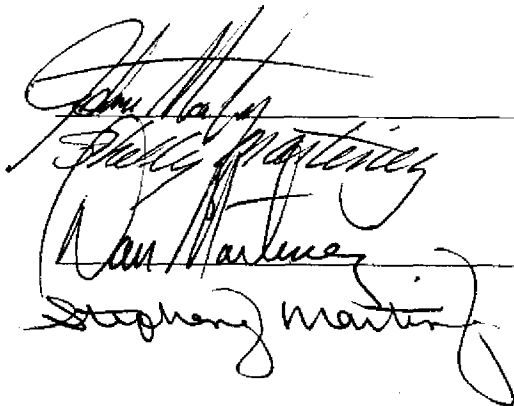 John
Shelly Martinez
Dan Martinez
Stepheny Martinez